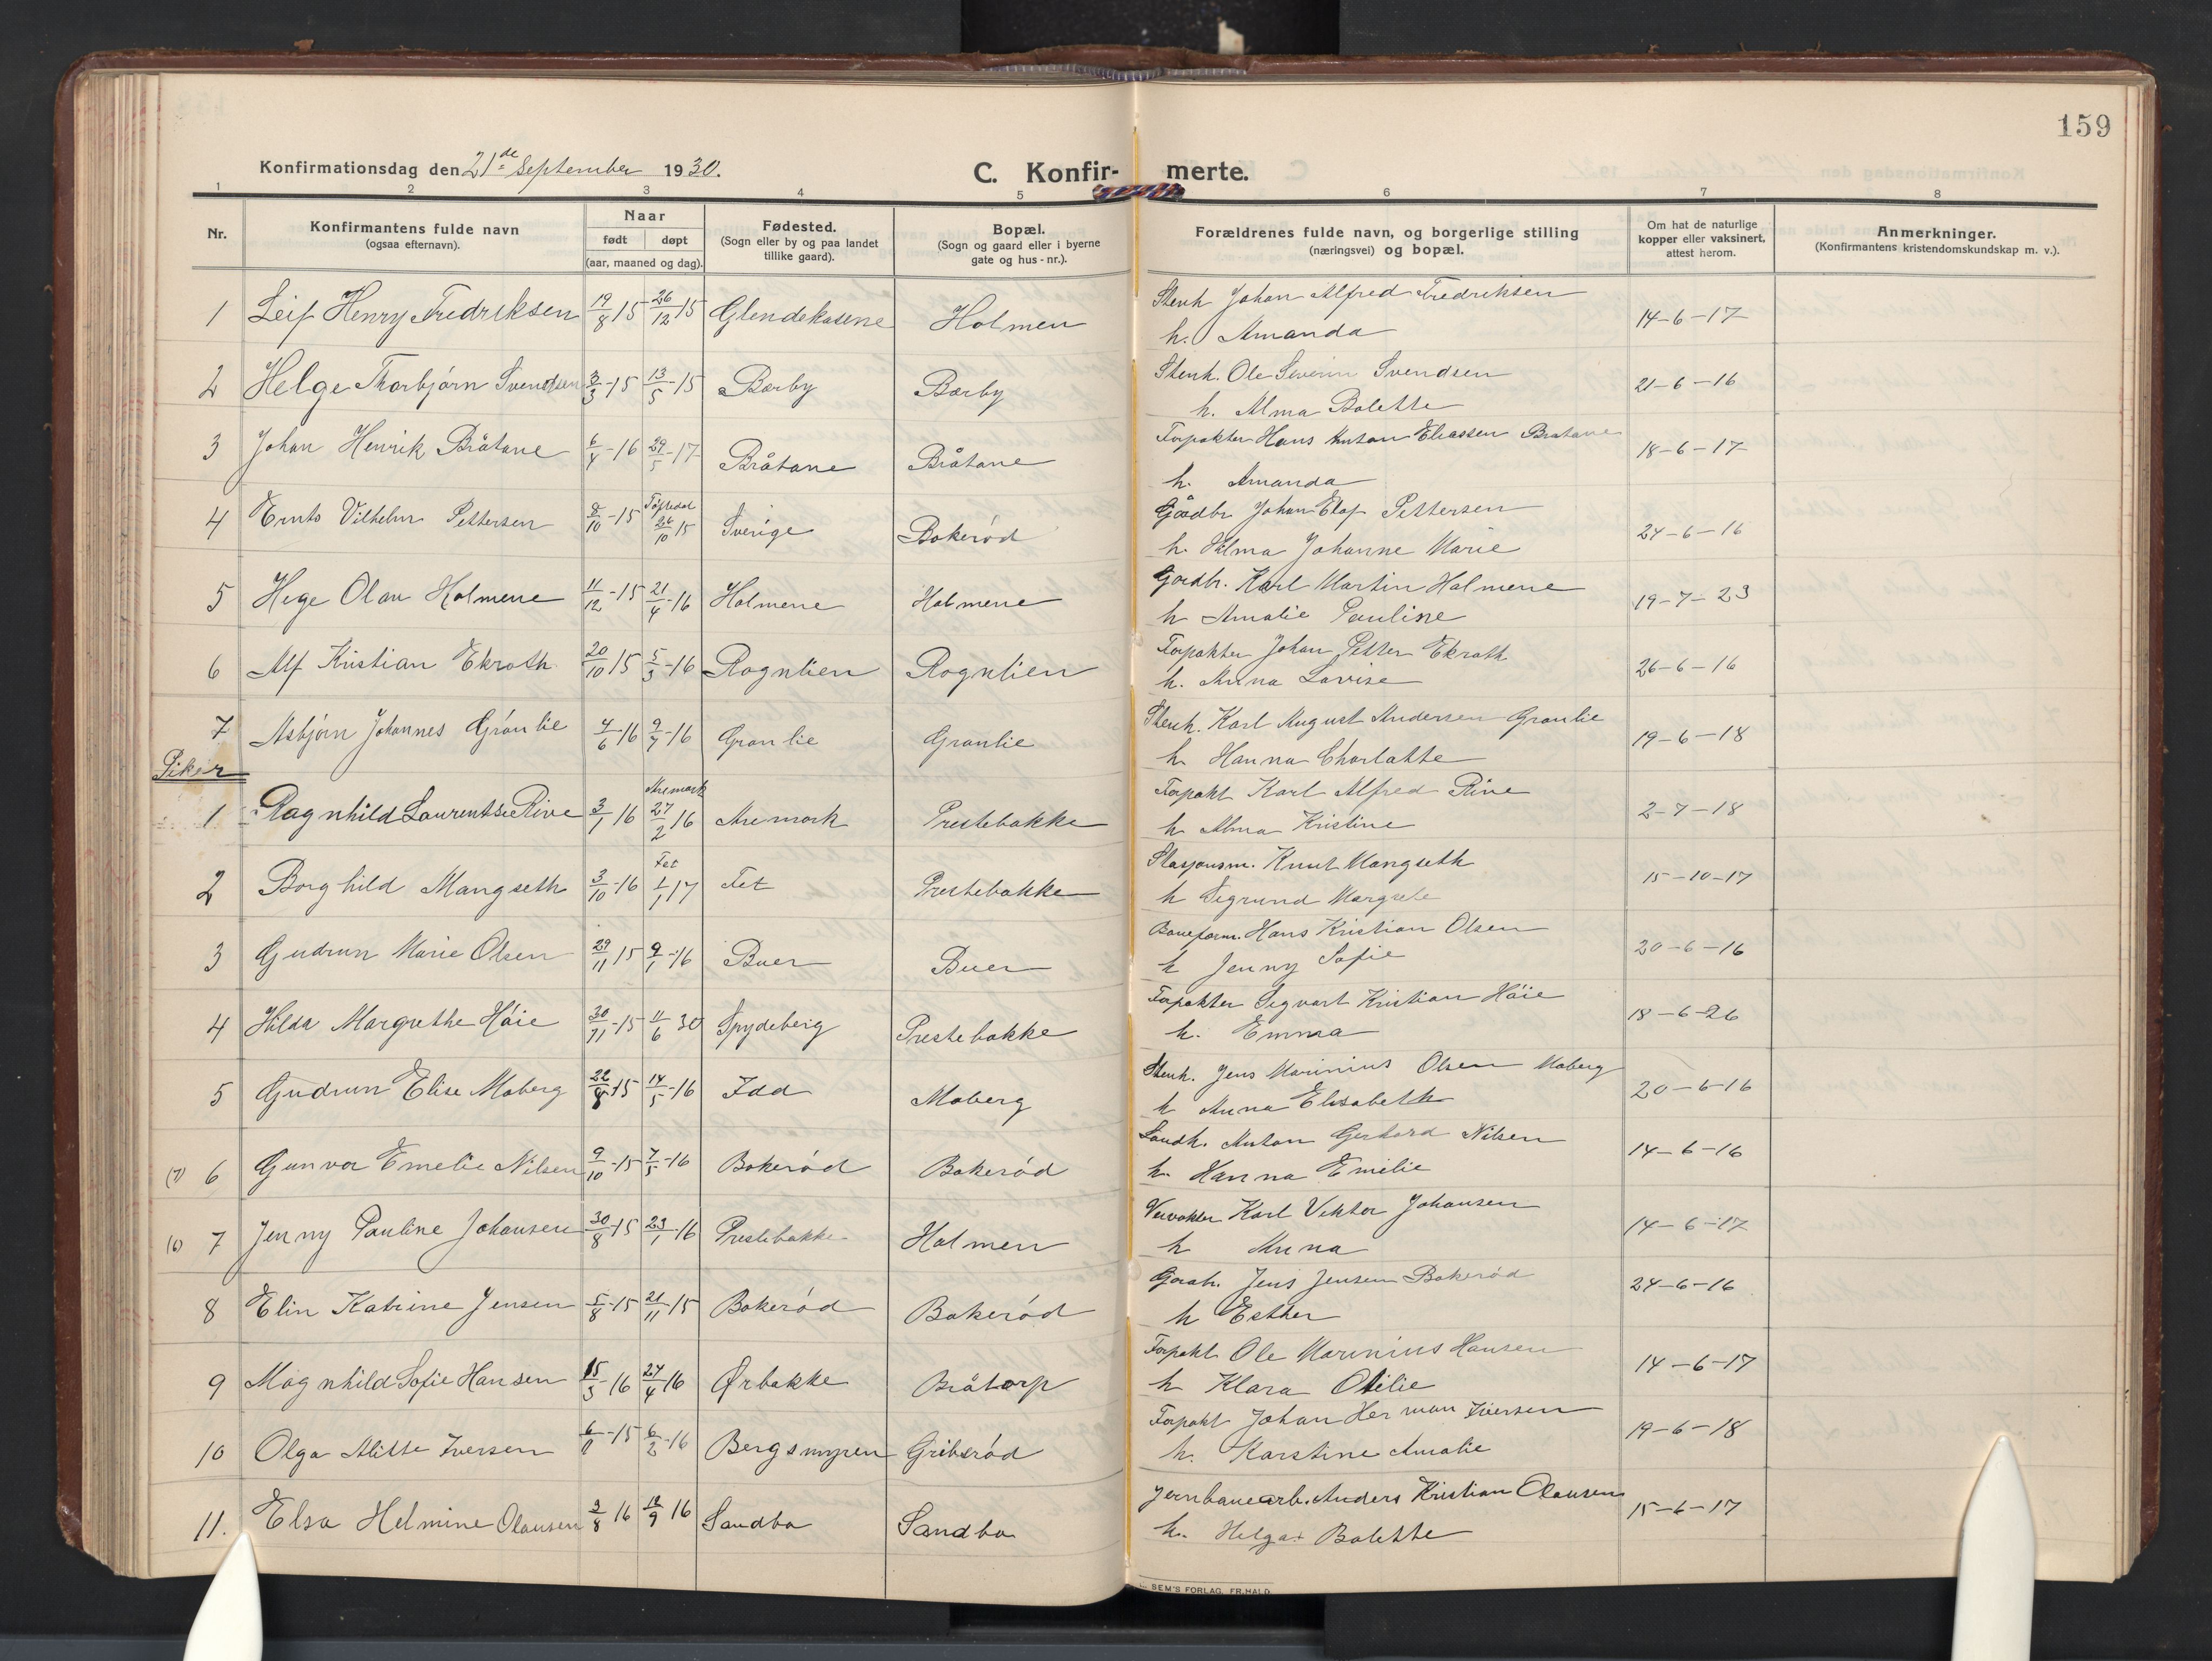 159
Konfirmationsdag den 21de September 1930.
C. Konfir- merte.
1 2 3 4 5 6 7 8
Nr.
Konfirmantens fulde navn
(ogsaa efternavn).
Naar
født døpt
(aar, maaned og dag).
Fødested.
(Sogn eller by og paa landet
tillike gaard).
Bopæl.
(Sogn og gaard eller i byerne
gate og hus-nr.).
Forældrenes fulde navn, og borgerlige stilling
(næringsvei) og bopæl.
Om hat de naturlige
kopper eller vaksinert,
attest herom.
Anmerkninger.
(Konfirmantens kristendomskundskap m. v.).
1 Leif Henry Fredriksen 19/8 15 26/12 15 Glendekasene Holmen Stenh. Johan Alfred Fredriksen 14-6-17
h. Amanda
2 Helge Thorbjørn Svendsen 3/3-15 13/5-15 Bærby Bærby Stenh. Ole Severin Svendsen 21-6-16
h. Alma Bolette
3 Johan Henrik Bråtane 6/4-16 29/5-17 Bråtane Bråtane Forpakter Hans Anton Eliassen Bratane 18-6-17
h. Amanda
4 Ernts Vilhelm Pettersen 8/10-15 Töftedal 26/10 15 Sverige Bokerød Gårdbr Johan Elof Pettersen 24-6-16
h. Hilma Johanne Marie
5 Hege Olav Holmene 11/12-15 21/4-16 Holmene Holmene Gordbr. Karl Martin Holmene 19-7-23
h Amalie Pauline
6 Alf Kristian Ekroth 20/10 15 5/3-16 Rognlien Rognlien Forpakter Johan Petter Ekroth 26-6-16
h. Anna Lovise
7 Asbjørn Johannes Grønlie 4/6-16 9/7-16 Grønlie Grønlie Stenh. Karl August Andersen Grønlie 19-6-18
h. Hanna Charlotte
Piker
1 Ragnhild Laurentse Rive 3/1 16 Aremark 27/2 16 Aremark Prestebakke Forpakt Karl Alfred Rive 2-7-18
h Alma Kristine
2 Borghild Mangseth 3/10-16 Fet 1/1 17 Fet Prestebakke Stasjonsm. Knut Mangseth 15-10-17
h Sigrund Margrete
3 Gudrun Marie Olsen 29/11 15 9/1-16 Buer Buer Baneform. Hans Kristian Olsen 20-6-16
h Jenny Sofie
4 Hilda Margrethe Høie 30/11-15 11/6 30 Spydeberg Prestebakke Forpakter Sigvart Kristian Høie 18-6-26
h. Emma
5 Gudrun Elise Moberg 22/8-15 14/5-16 Idd Moberg Stenh. Jens Marinius Olsen Moberg 20-6-16
h Anna Elisabeth
(7) 6 Gunvor Emelie Nilsen 9/10-15 7/5-16 Bokerød Bokerød Landh. Anton Gerhard Nilsen 14-6-16
h. Hanna Emilie
(6) 7 Jenny Pauline Johansen 30/8-15 23/1-16 Prestebakke Holmen Veivokter Karl Viktor Johansen 14-6-17
h Anna
8 Elin Katrine Jensen 5/8-15 21/11-15 Bokerød Bokerød Gordb. Jens Jensen Bokerød 24-6-16
h Esther
9 Magnhild Sofie Hansen 15/3-16 24/4 16 Ørbakke Bråtorp Forpakt Ole Marinius Hansen 14-6-17
h Klara Otilie
10 Olga Mitte Iversen 6/9-15 6/2-16 Bergsmyren Griberød Forpakt Johan Herman Iversen 19-6-18
h. Karstine Amalie
11. Elsa Helmine Olausen 3/8 16 12/9 16 Sandbo Sandbo Jernbanearb. Anders Kristian Olausen 15-6-17
h. Helga Bolette
SEM'S FORLAG, FR.HALD